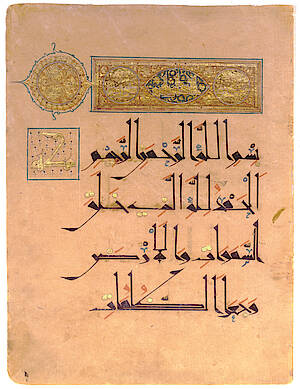 بسم الله الرحمن الرحيم
الحمد لله الذي خلق
السموات والأرض
وجعل الظلمات